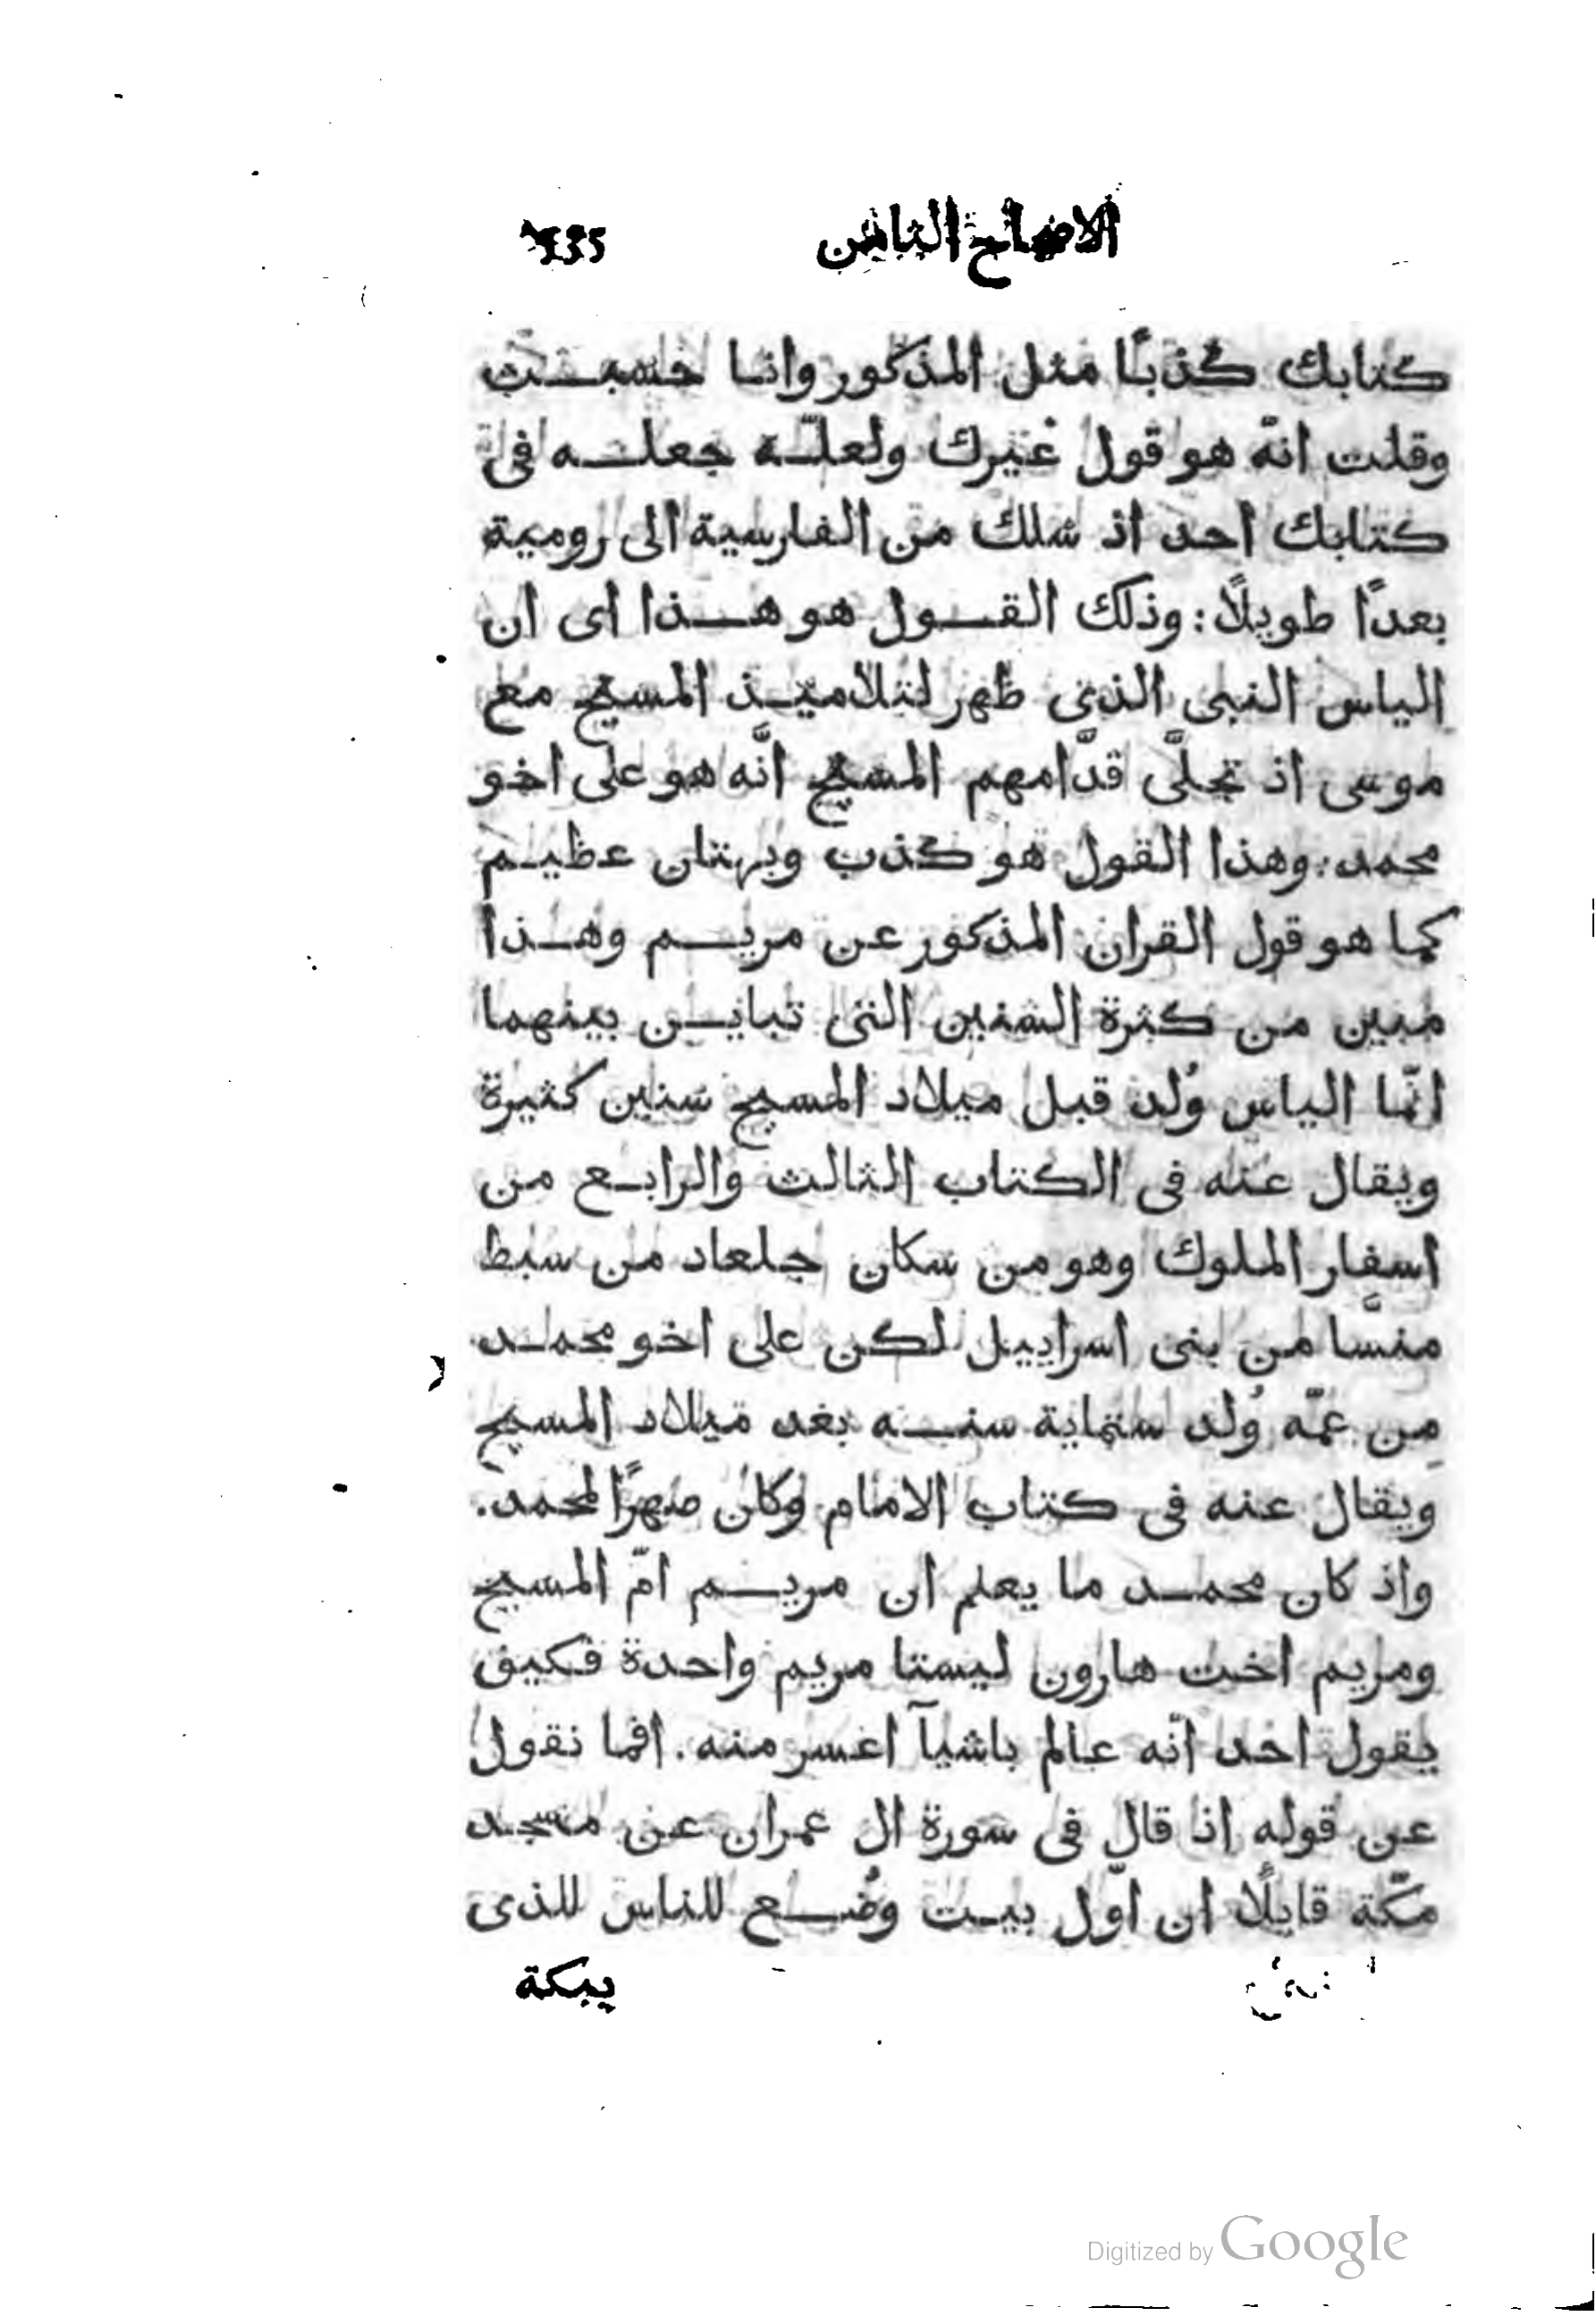 الاصحاح الثامن
كتابك كذبًا مثل المذكور وانا حسبت
وقلت انّه هو قول غيرك ولعلّه جعله فى
كتابك احد اذ سلك من الفارسية الى رومية
بعدًا طويلًا: وذلك القول هو هذا اى ان
الياس النبى الذى ظهر لتلاميذ المسيح مع
موسى اذ تجلّى قدّامهم المسيح انّه هو على اخو
محمد: وهذا القول هو كذب وبهتان عظيم
كما هو قول القران المذكور عن مريم وهذا
مبين من كثرة السنين التى تباين بينهما
انّما الياس وُلد قبل ميلاد المسيح سنين كثيرة
ويقال عنه فى الكتاب الثالث والرابع من
اسفار الملوك وهو من سكان جلعاد من سبط
منسّا من بنى اسراييل لكن على اخو محمد
مِن عمّه وُلد ستماية سنه بعد ميلاد المسيح
ويقال عنه فى كتاب الامام وكان صهرًا لمحمد.
واذ كان محمد ما يعلم ان مريم امّ المسيح
ومريم اخت هارون ليستا مريم واحدة فكيف
يقول احد انّه عالم باشيآ اعسر منه. افما نقول
عن قوله اذا قال فى سورة ال عمران عن مسجد
مكّة قايلًا ان اوّل بيت وُضع للناس للذى
يبكة
Digitized by Google